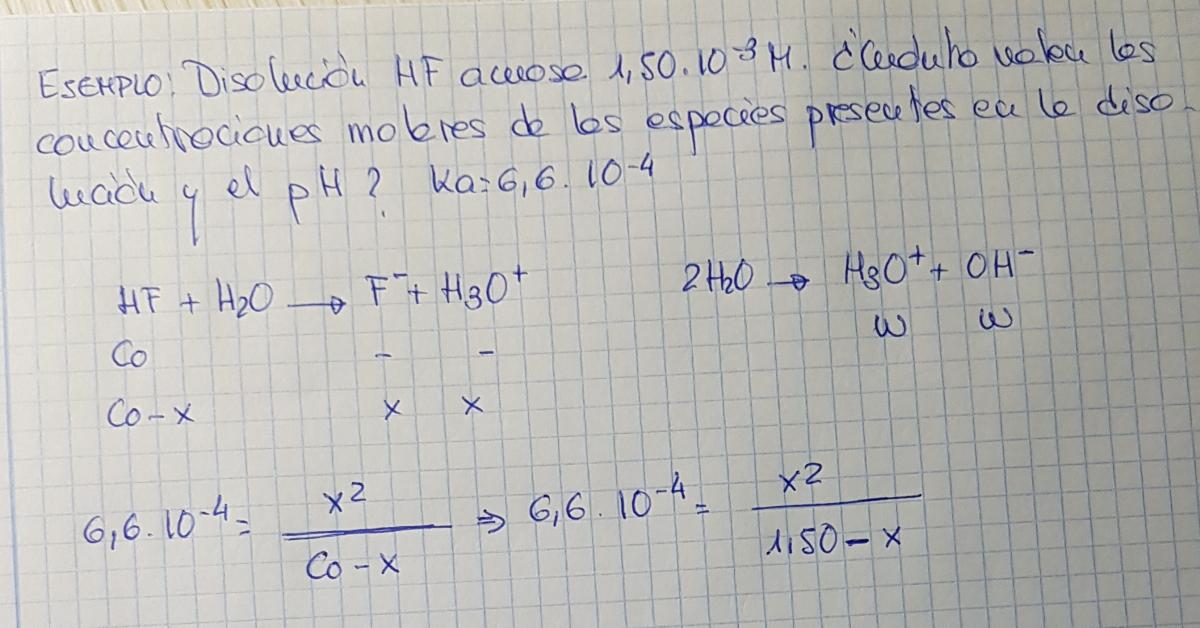 EJEMPLO: Disolución HF acuosa 1,50.10⁻³ M. ¿Cuánto valen las
concentraciones molares de las especies presentes en la diso
lución y el pH? Ka=6,6.10⁻⁴
HF + H₂O → F⁻ + H₃O⁺ 2H₂O → H₃O⁺ + OH⁻
w w
Co - -
Co-x x x
6,6.10⁻⁴ = x² / (Co-x) ⇒ 6,6.10⁻⁴ = x² / (1,50-x)